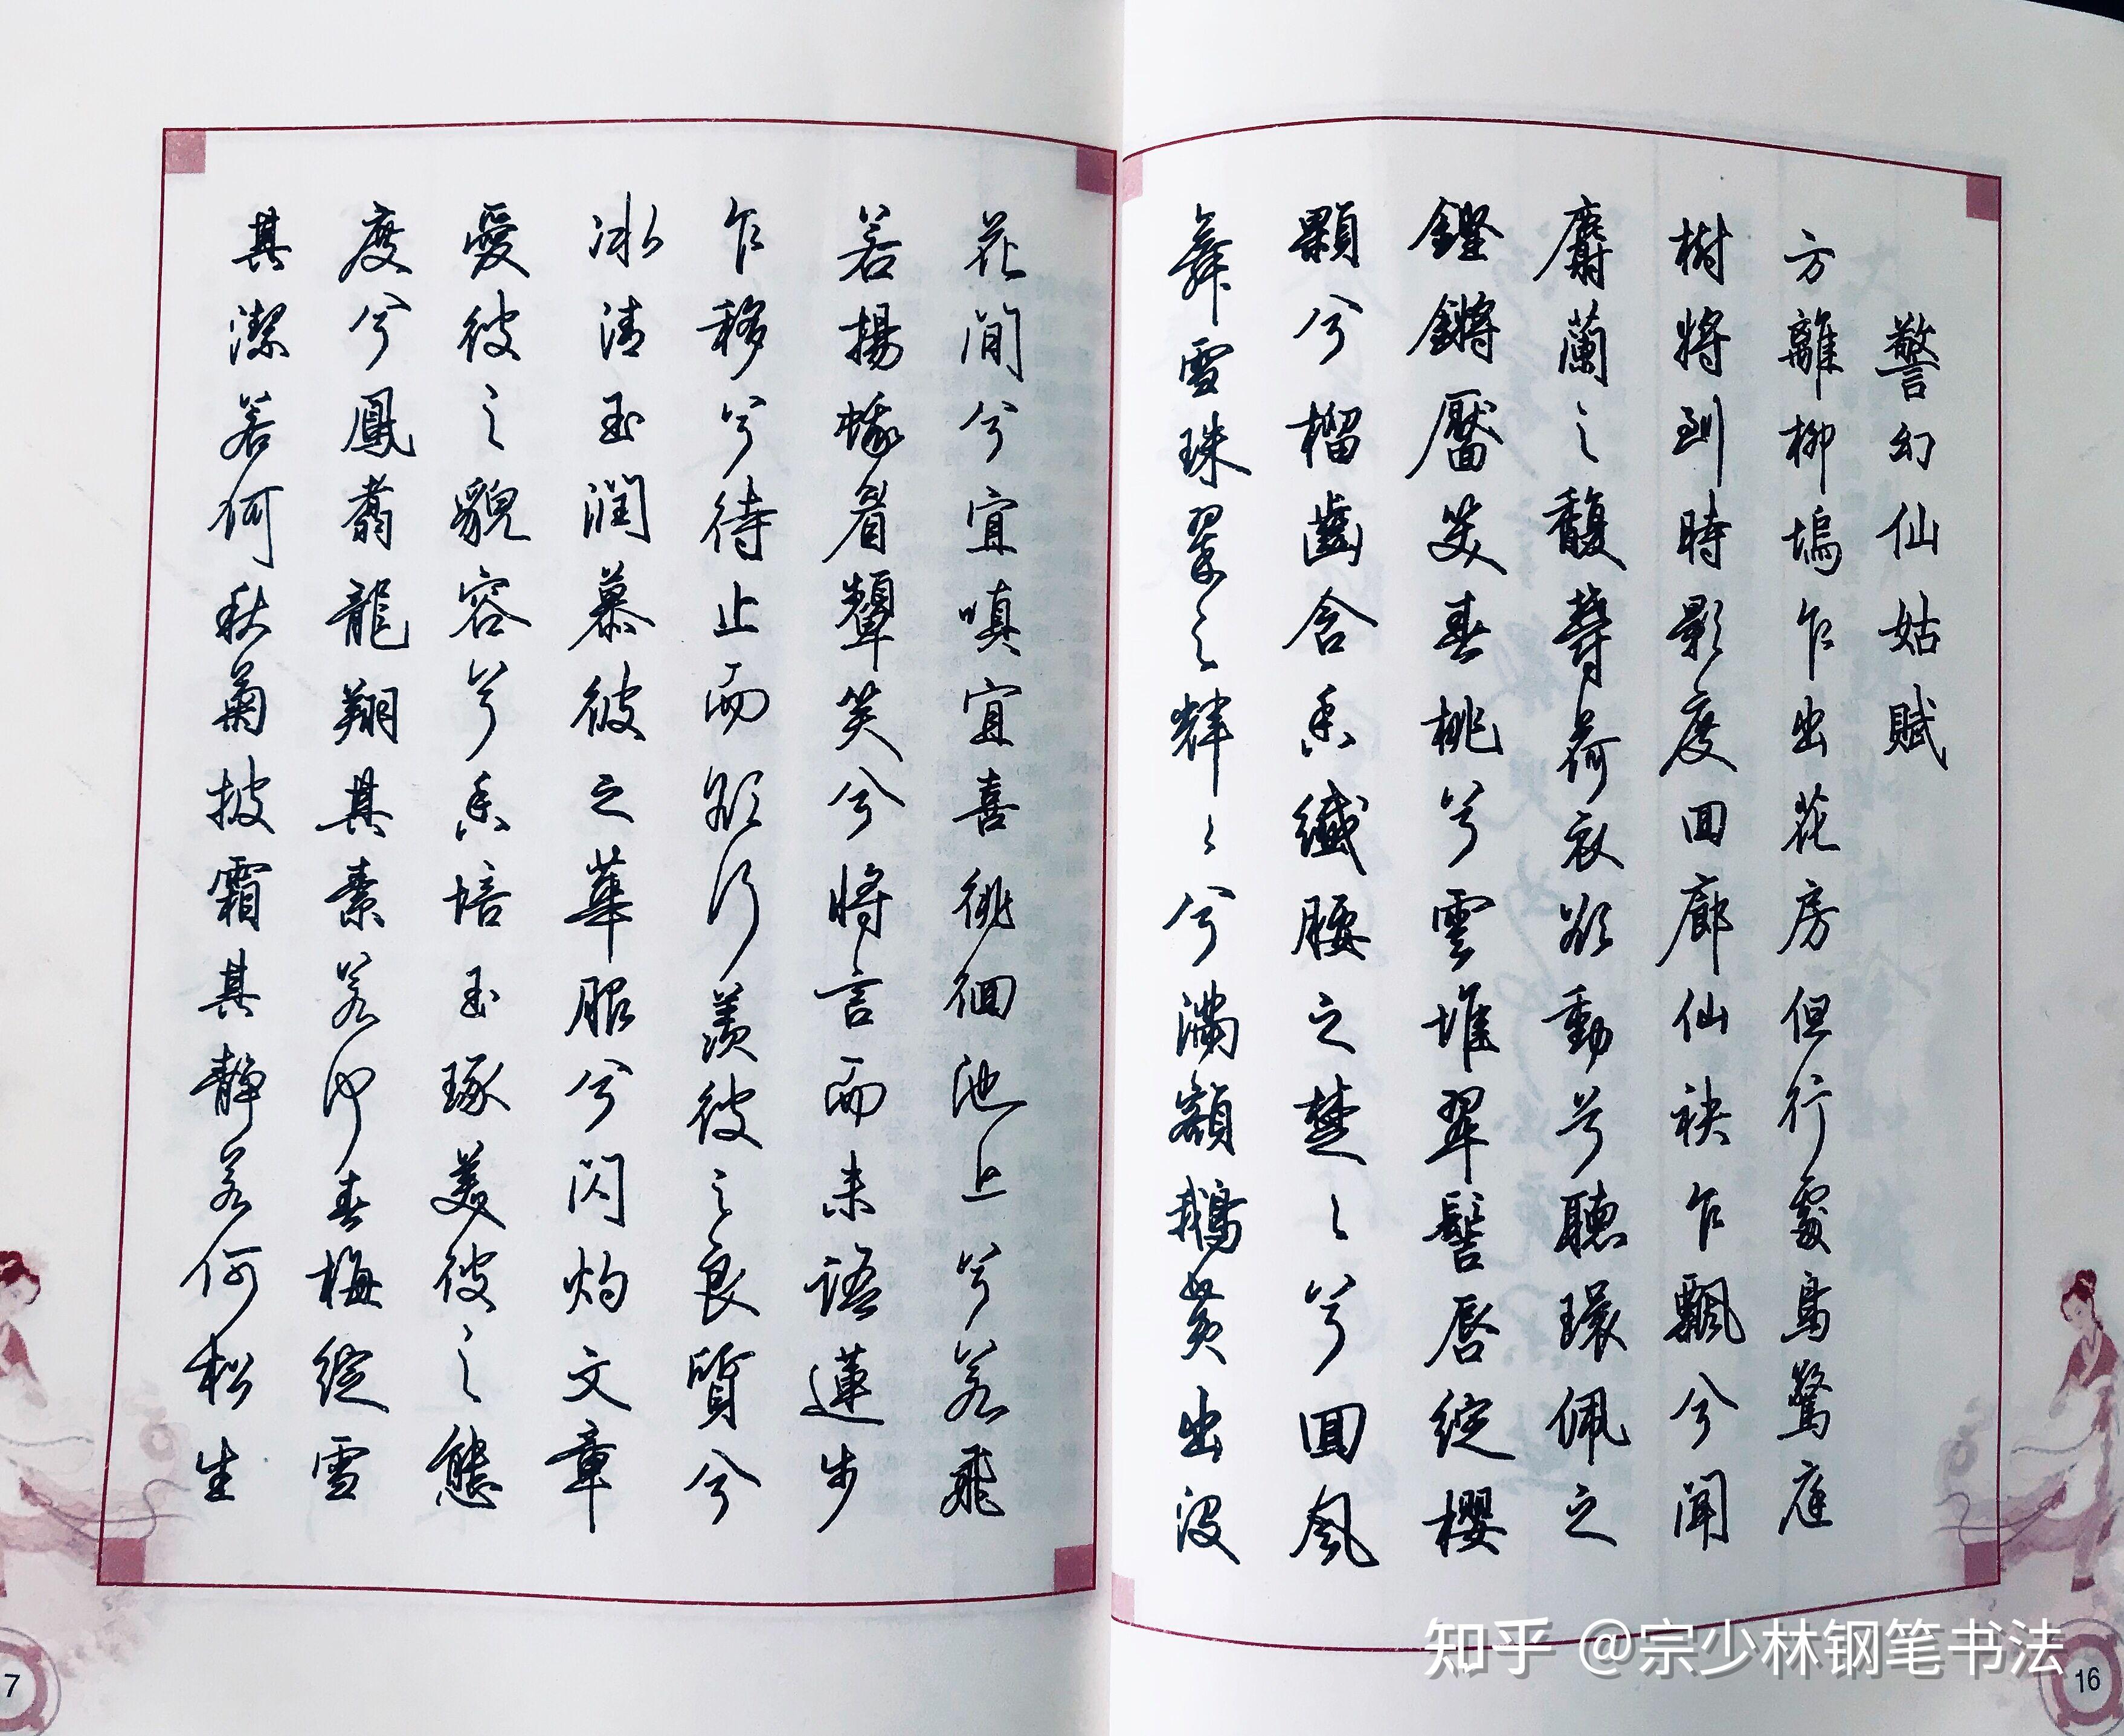 警幻仙姑賦
方離柳塢乍出花房但行處鳥驚庭
樹將到時影度回廊仙袂乍飄兮聞
麝蘭之馥鬱荷衣欲動兮聽環佩之
鏗鏘靨笑春桃兮雲堆翠髻唇綻櫻
顆兮榴齒含香纖腰之楚〻兮回風
舞雪珠翠之輝〻兮滿額鵝黃出沒
花間兮宜嗔宜喜徘徊池上兮若飛
若揚蛾眉顰笑兮將言而未語蓮步
乍移兮待止而欲行羨彼之良質兮
冰清玉潤慕彼之華服兮閃灼文章
愛彼之貌容兮香培玉琢美彼之態
度兮鳳翥龍翔其素若何春梅綻雪
其潔若何秋菊披霜其靜若何松生
知乎 @宗少林钢笔书法
16
7